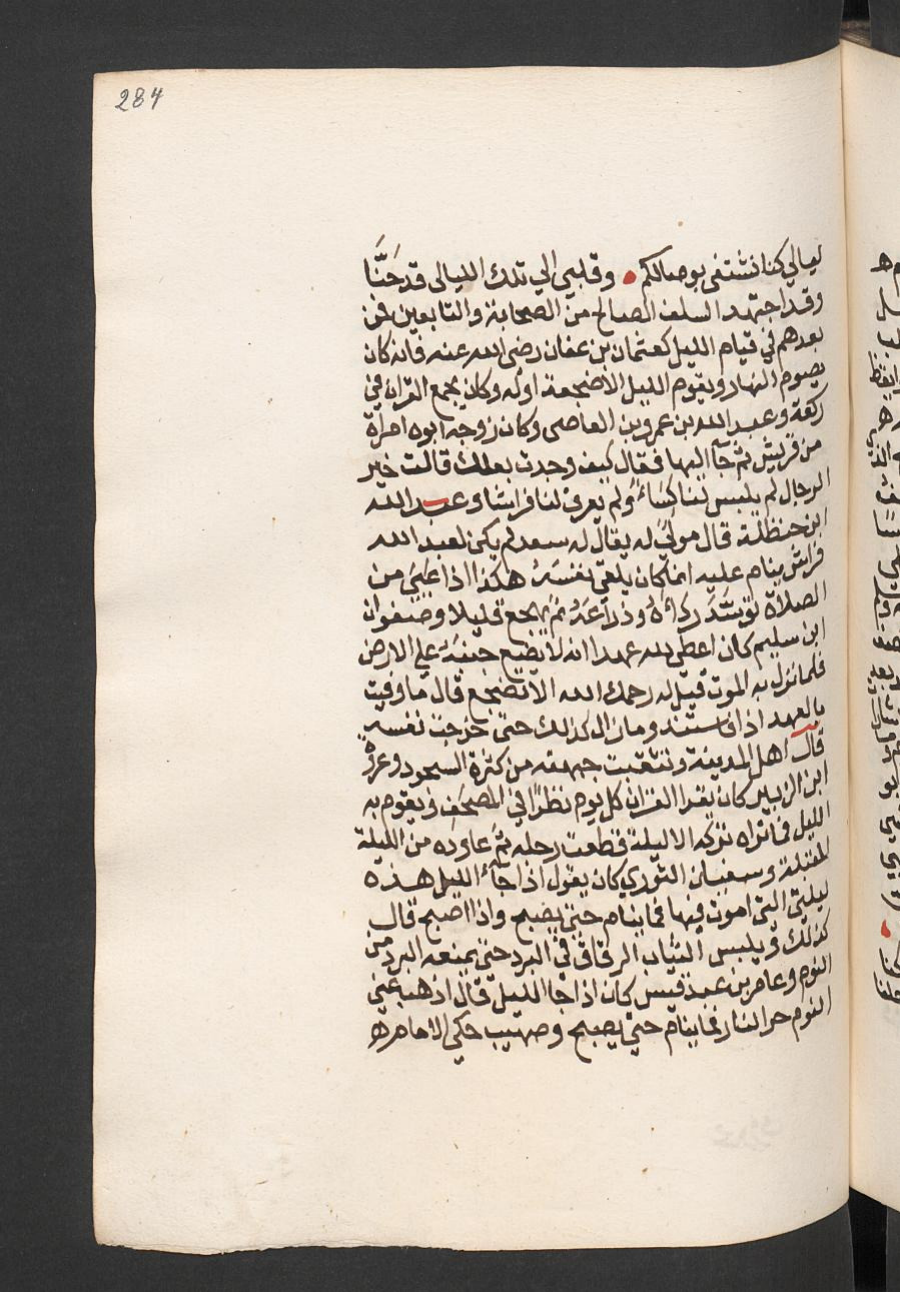 284
ليالي كنا نشتفى بوصالكم • وقلبي الي تلك الليالى قد حَنَّا
وقد اجتهد السلف الصالح من الصحابة والتابعين فمن
بعدهم في قيام الليل كعثمان بن عفان رضى الله عنه فانه كان
يصوم النهار ويقوم الليل الا ضجعة اوله وكان يجمع القران في
ركعة وعبد الله بن عمرو بن العاصى وكان زوجه ابوه امراة
من قريش ثم جآ اليها فقال كيف وجدت بعلك قالت خير
الرجال لم يلبس لنا كساءً ولم يعرف لنا فراشا وعبد الله
ابن حنظلة قال مولىً له يقال له سعد لم يكن لعبد الله
فراش ينام عليه انما كان يلقي نفسَهُ هكذا اذا عَيِيَ من
الصلاة توسَّدَ رداءهُ وذراعَهُ ثم يهجع قليلا وصفوان
ابن سليم كان اعطى لله عهدا انه لا يضع جنبَهُ علي الارض
فلما نزل به الموت قيل له رحمك الله الا تضجع قال ما وفيت
بالعهد اذا فاستند وما زال كذلك حتى خرجت نفسه
قال اهل المدينة ونثقبت جبهته من كثرة السجود وعروة
ابن الزبير كان يقرا القران كل يوم نظرًا في المصحَف ويقوم به
الليل فما تراه تركه الا ليلة قطعت رجله ثم عاوده من الليلة
المقبلة وسفيان الثوري كان يقول اذا جآء الليل هذه
ليلتي التي اموت فيها فما ينام حتى يصبح واذا اصبح قال
كذلك ويلبس الثياب الرقاق في البرد حتى يمنعه البرد من
النوم وعامر بن عبد قيس كان اذا جا الليل قال اذهب عني
النوم حر النار فما ينام حتى يصبح وصهيب حكي الامام